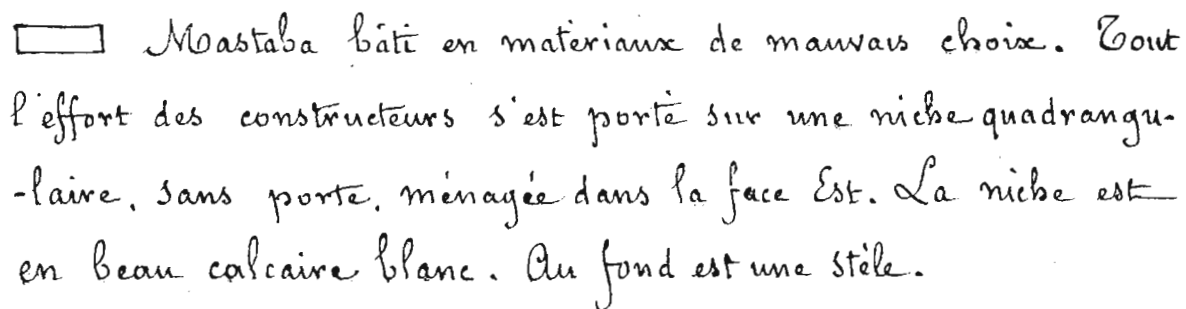 Mastaba bâti en matériaux de mauvais choix. Tout
l'effort des constructeurs s'est porté sur une niche quadrangu-
-laire, sans porte, ménagée dans la face Est. La niche est
en beau calcaire blanc. Au fond est une stèle.